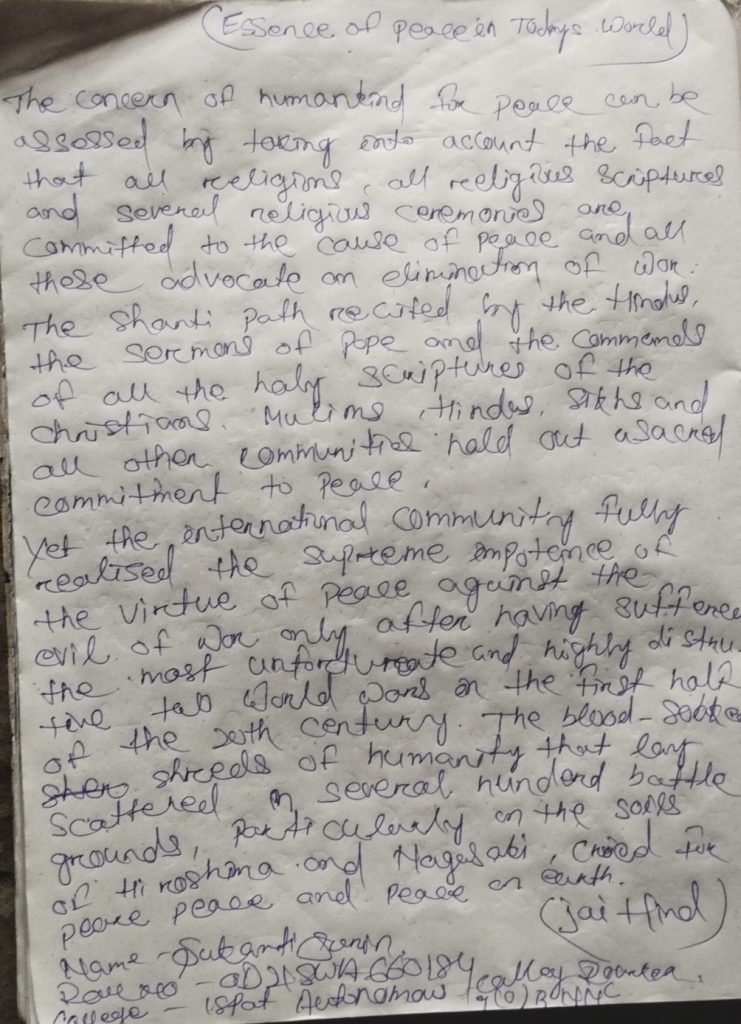 (Essence of peace in Todays World)
The concern of humankind for peace can be
assessed by taking into account the fact
that all religions, all religious scriptures
and several religious ceremonies are
committed to the cause of peace and all
these advocate an elimination of war.
The Shanti Path recited by the Hindus,
the sermons of Pope and the commands
of all the holy scriptures of the
Christians. Mulims, Hindus, Sikhs and
all other communities hold out a sacred
commitment to peace.
Yet the international community fully
realised the supreme impotence of
the virtue of peace against the
evil of war only after having suffered
the most unfortunate and highly distru
tive two World Wars in the first half
of the 20th century. The blood-soaked
shreds of humanity that lay
scattered in several hunderd battle
grounds, particularly on the soils
of Hiroshima and Nagasaki, cried for
peace peace and peace on earth.
(Jai Hind)
Name -
Roll no -
College - Ispat Autonomous